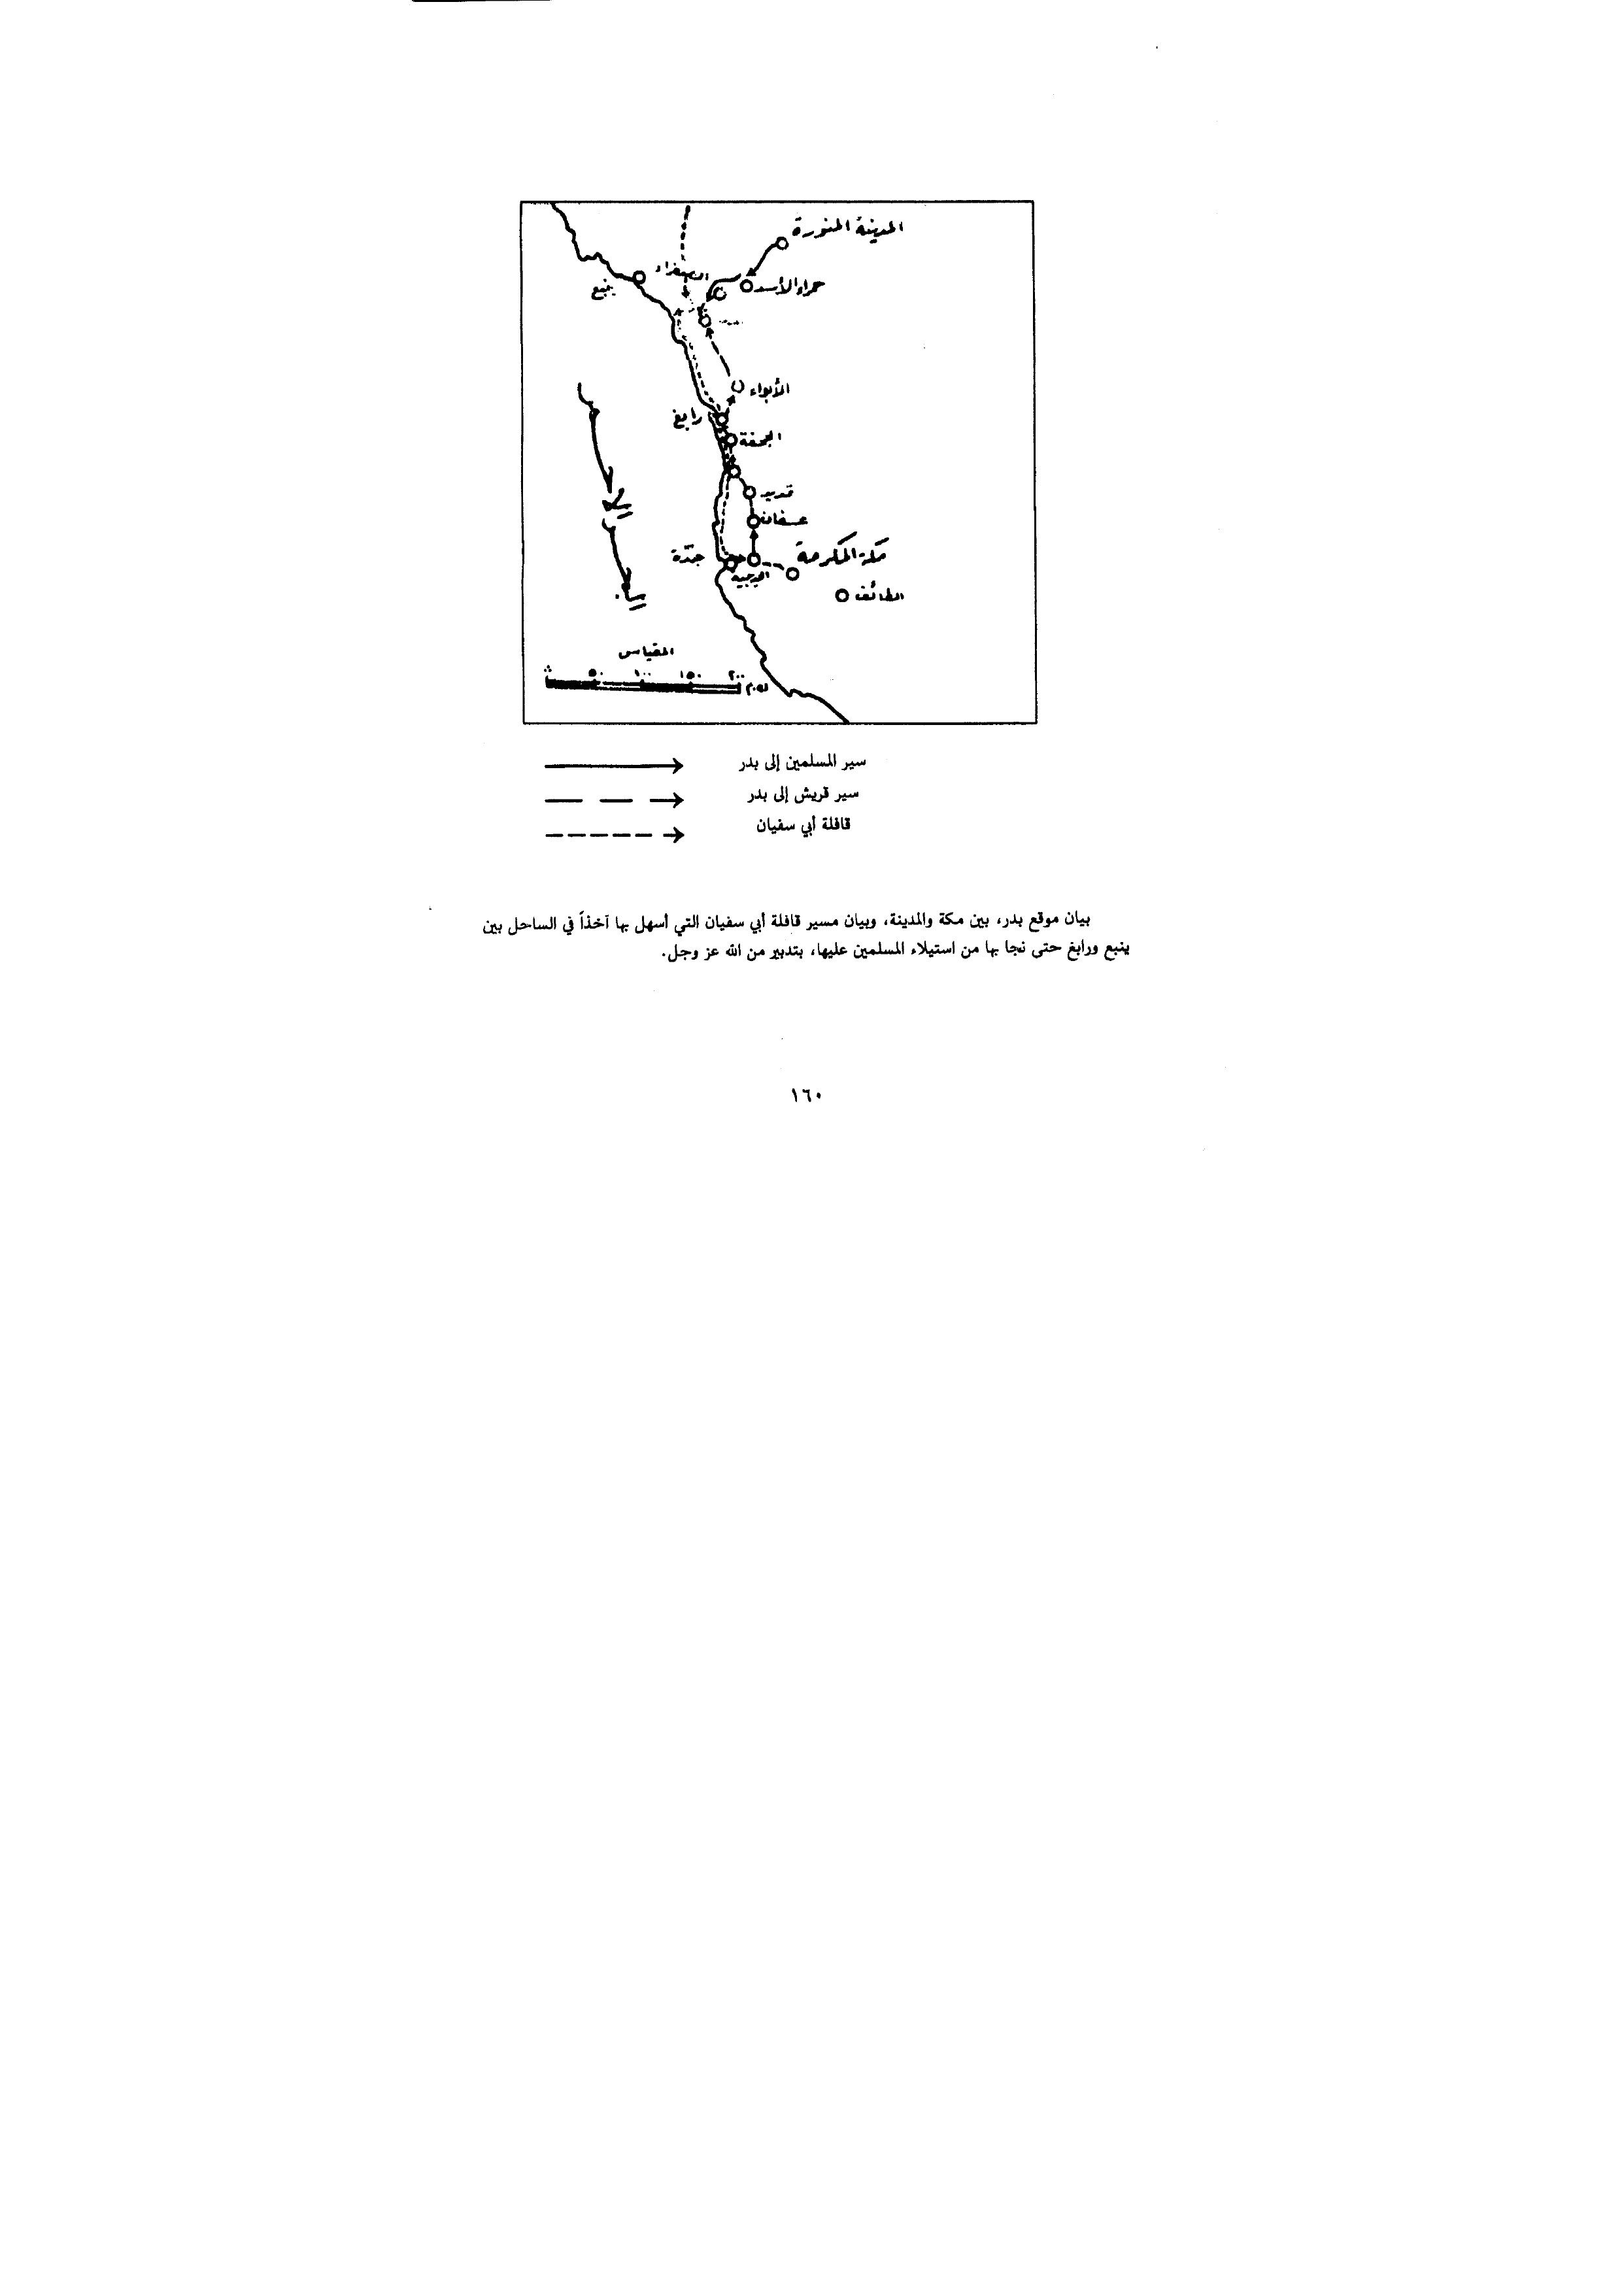 المدينة المنورة
حمراء الأسد
ينبع
الأبواء
رابغ
الجحفة
قديد
عسفان
مكة المكرمة
جدّة
الطائف
البحر الأحمر
المقياس
٥٠ ١٠٠ ١٥٠ ٢٠٠
سير المسلمين إلى بدر
سير قريش إلى بدر
قافلة أبي سفيان
بيان موقع بدر، بين مكة والمدينة، وبيان مسير قافلة أبي سفيان التي أسهل بها آخذاً في الساحل بين
ينبع ورابغ حتى نجا بها من استيلاء المسلمين عليها، بتدبير من الله عز وجل.
١٦٠